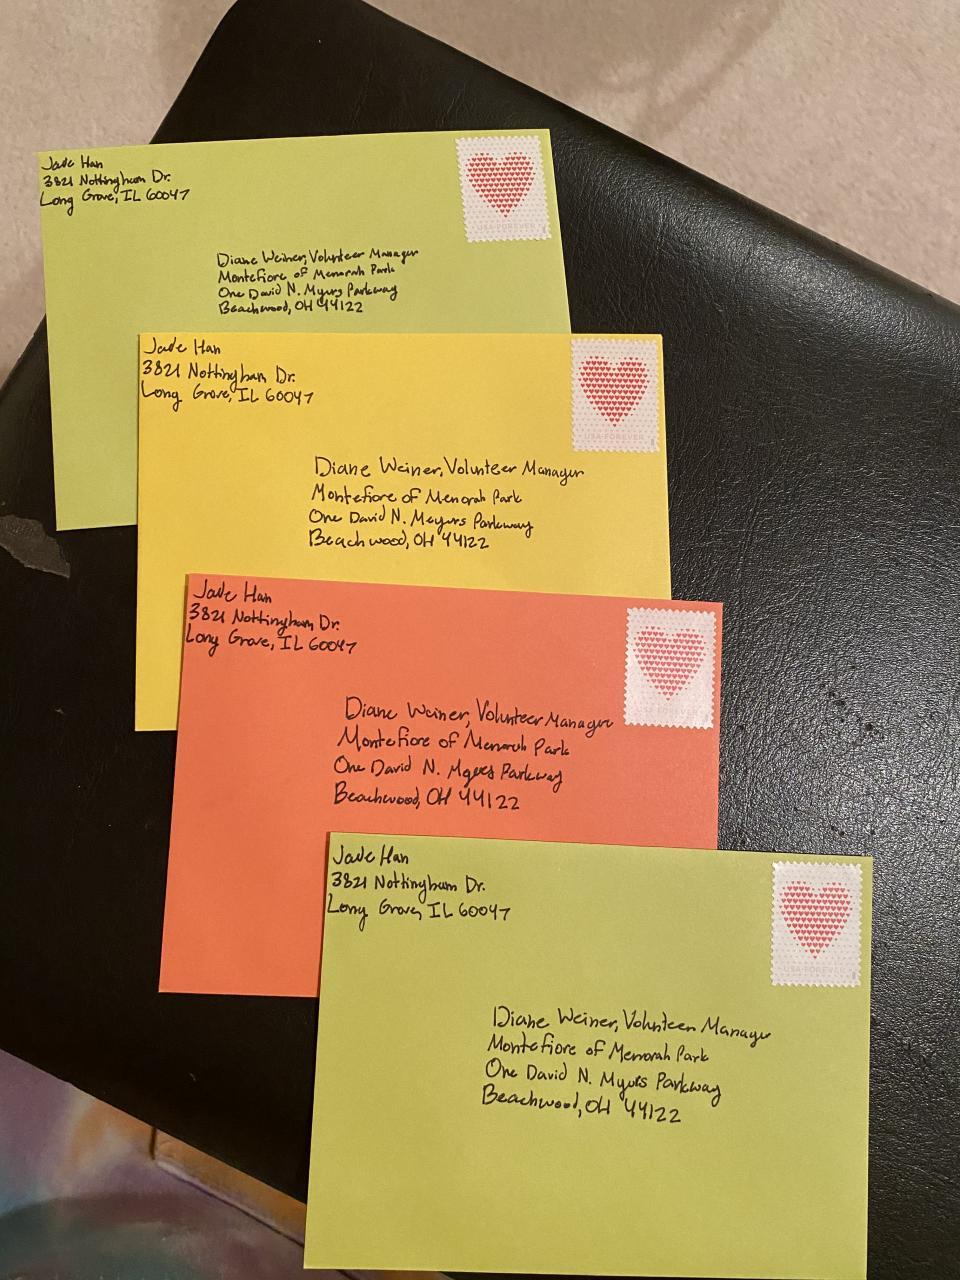 Jade Han
3821 Nottingham Dr.
Long Grove, IL 60047
USA FOREVER
Diane Weiner, Volunteer Manager
Montefiore of Menorah Park
One David N. Myers Parkway
Beachwood, OH 44122
Jade Han
3821 Nottingham Dr.
Long Grove, IL 60047
USA FOREVER
Diane Weiner, Volunteer Manager
Montefiore of Menorah Park
One David N. Meyers Parkway
Beachwood, OH 44122
Jade Han
3821 Nottingham Dr.
Long Grove, IL 60047
USA FOREVER
Diane Weiner, Volunteer Manager
Montefiore of Menorah Park
One David N. Myers Parkway
Beachwood, OH 44122
Jade Han
3821 Nottingham Dr.
Long Grove, IL 60047
USA FOREVER
Diane Weiner, Volunteer Manager
Montefiore of Menorah Park
One David N. Myers Parkway
Beachwood, OH 44122